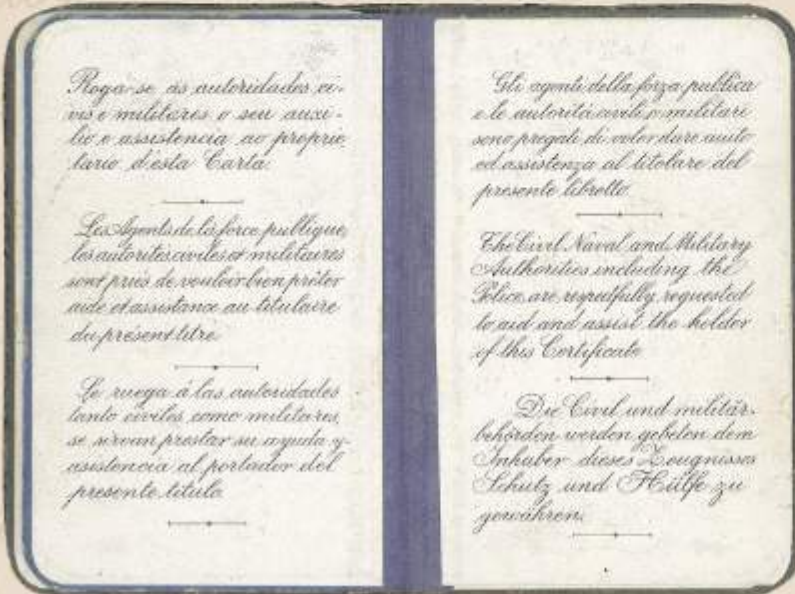 Roga-se ás autoridades ci-
vis e militares o seu auxi-
lio e assistencia ao proprie-
tario d'esta Carta.
Les Agents de la force publique,
les autorités civiles et militaires
sont priés de vouloir bien prêter
aide et assistance au titulaire
du présent titre
Se ruega á las autoridades
tanto civiles, como militares,
se sirvan prestar su ayuda y
asistencia al portador del
presente titulo.
Gli agenti della forza publica
e le autoritá civili e militari
sono pregati di voler dare aiuto
ed assistenza al titolare del
presente libretto.
The Civil Naval and Military
Authorities including the
Police, are respectfully requested
to aid and assist the holder
of this Certificate
Die Civil und militär-
behörden werden gebeten dem
Inhaber dieses Zeugnisses
Schutz und Hülfe zu
gewähren.